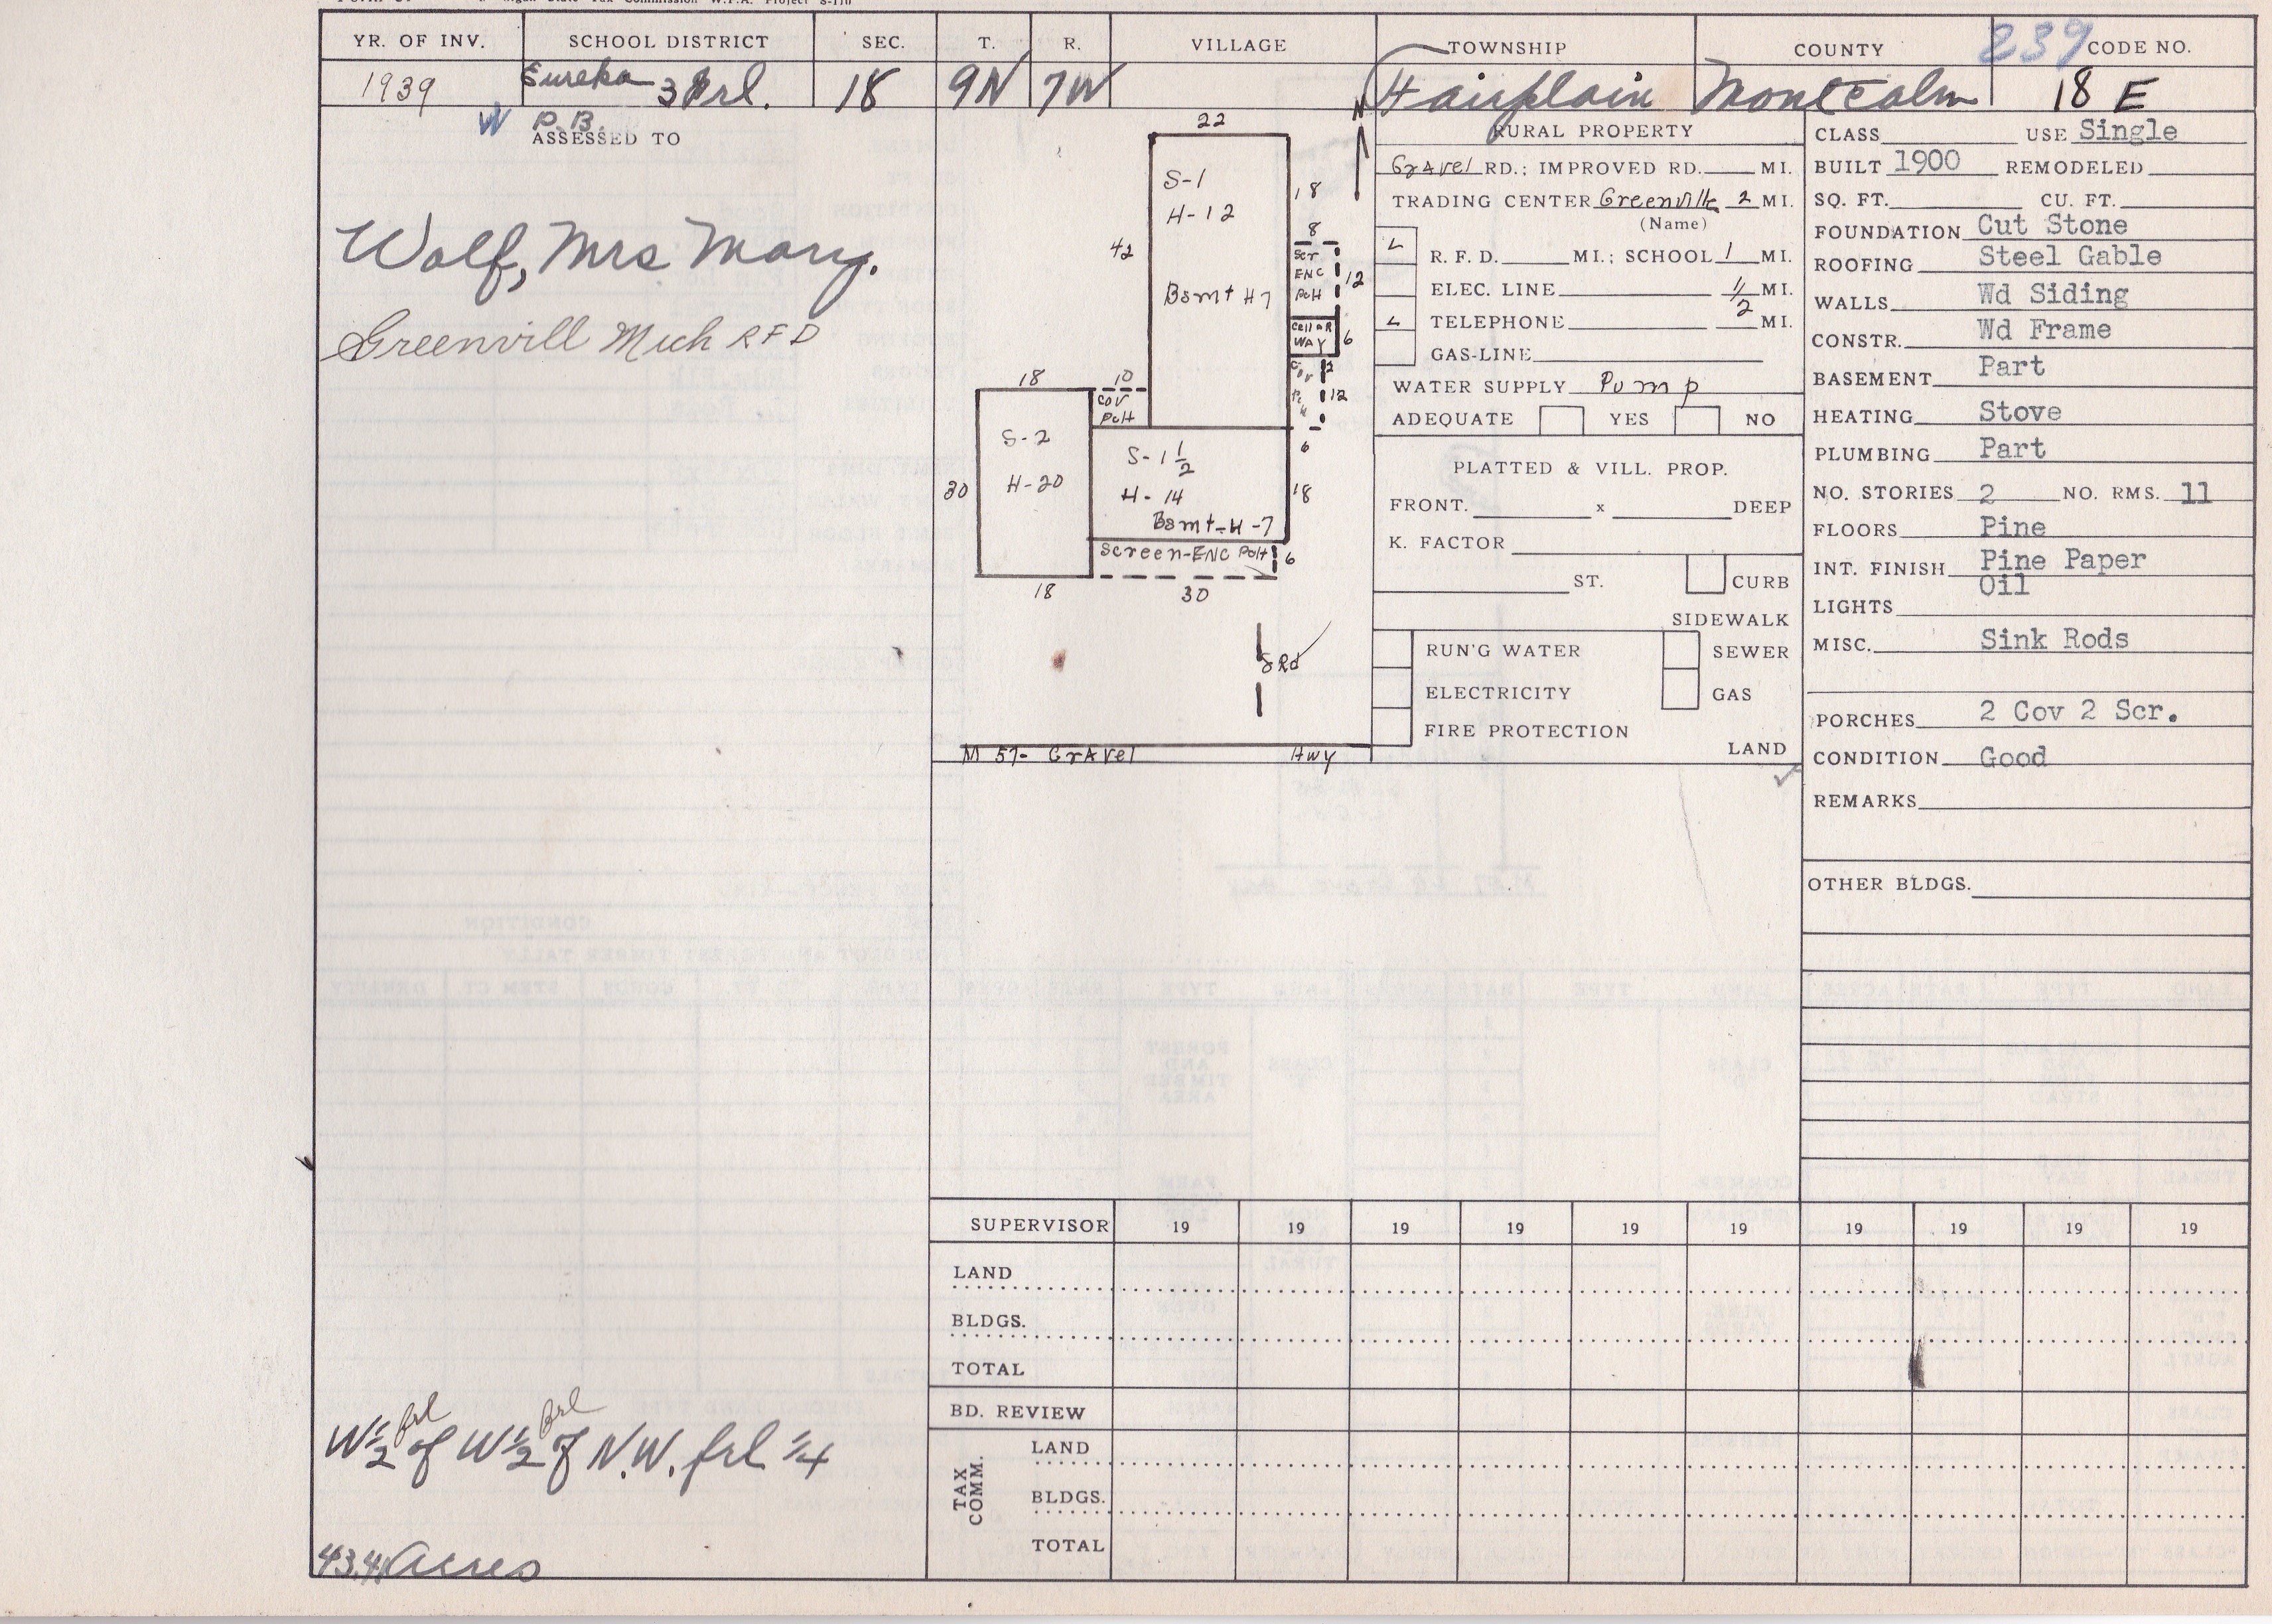 Tax Commission W.P.A. Project S-110
YR. OF INV. SCHOOL DISTRICT SEC. T. R. VILLAGE TOWNSHIP COUNTY 239 CODE NO.
1939 Eureka 3 frl. 18 9N 7W Fairplain Montcalm 18 E
W P.B.
ASSESSED TO
Wolf, Mrs Mary.
Greenvill Mich RFD
W 1/2 frl of W 1/2 frl of N.W. frl 1/4
43.41 Acres
N
22
S-1
H-12
18
42
Bsmt H7
8
Scr
ENC
PcH
12
CellaR
WAY
6
Cov
12
18
10
Cov
PcH
S-2
H-20
30
6
S-1 1/2
H-14
18
Bsmt-H-7
Screen-ENC PcH
6
18
30
Rd
M 57- GrAvel Hwy
RURAL PROPERTY
GrAvel RD.; IMPROVED RD. MI.
TRADING CENTER Greenville 2 MI.
(Name)
R. F. D. MI.; SCHOOL 1 MI.
ELEC. LINE 1/2 MI.
TELEPHONE MI.
GAS-LINE
WATER SUPPLY Pump
ADEQUATE YES NO
PLATTED & VILL. PROP.
FRONT. x DEEP
K. FACTOR
ST. CURB
SIDEWALK
RUN'G WATER SEWER
ELECTRICITY GAS
FIRE PROTECTION
LAND
CLASS USE Single
BUILT 1900 REMODELED
SQ. FT. CU. FT.
FOUNDATION Cut Stone
ROOFING Steel Gable
WALLS Wd Siding
CONSTR. Wd Frame
BASEMENT Part
HEATING Stove
PLUMBING Part
NO. STORIES 2 NO. RMS. 11
FLOORS Pine
INT. FINISH Pine Paper
LIGHTS Oil
MISC. Sink Rods
PORCHES 2 Cov 2 Scr.
CONDITION Good
REMARKS
OTHER BLDGS.
SUPERVISOR 19 19 19 19 19 19 19 19 19 19
LAND
BLDGS.
TOTAL
BD. REVIEW
TAX COMM.
LAND
BLDGS.
TOTAL